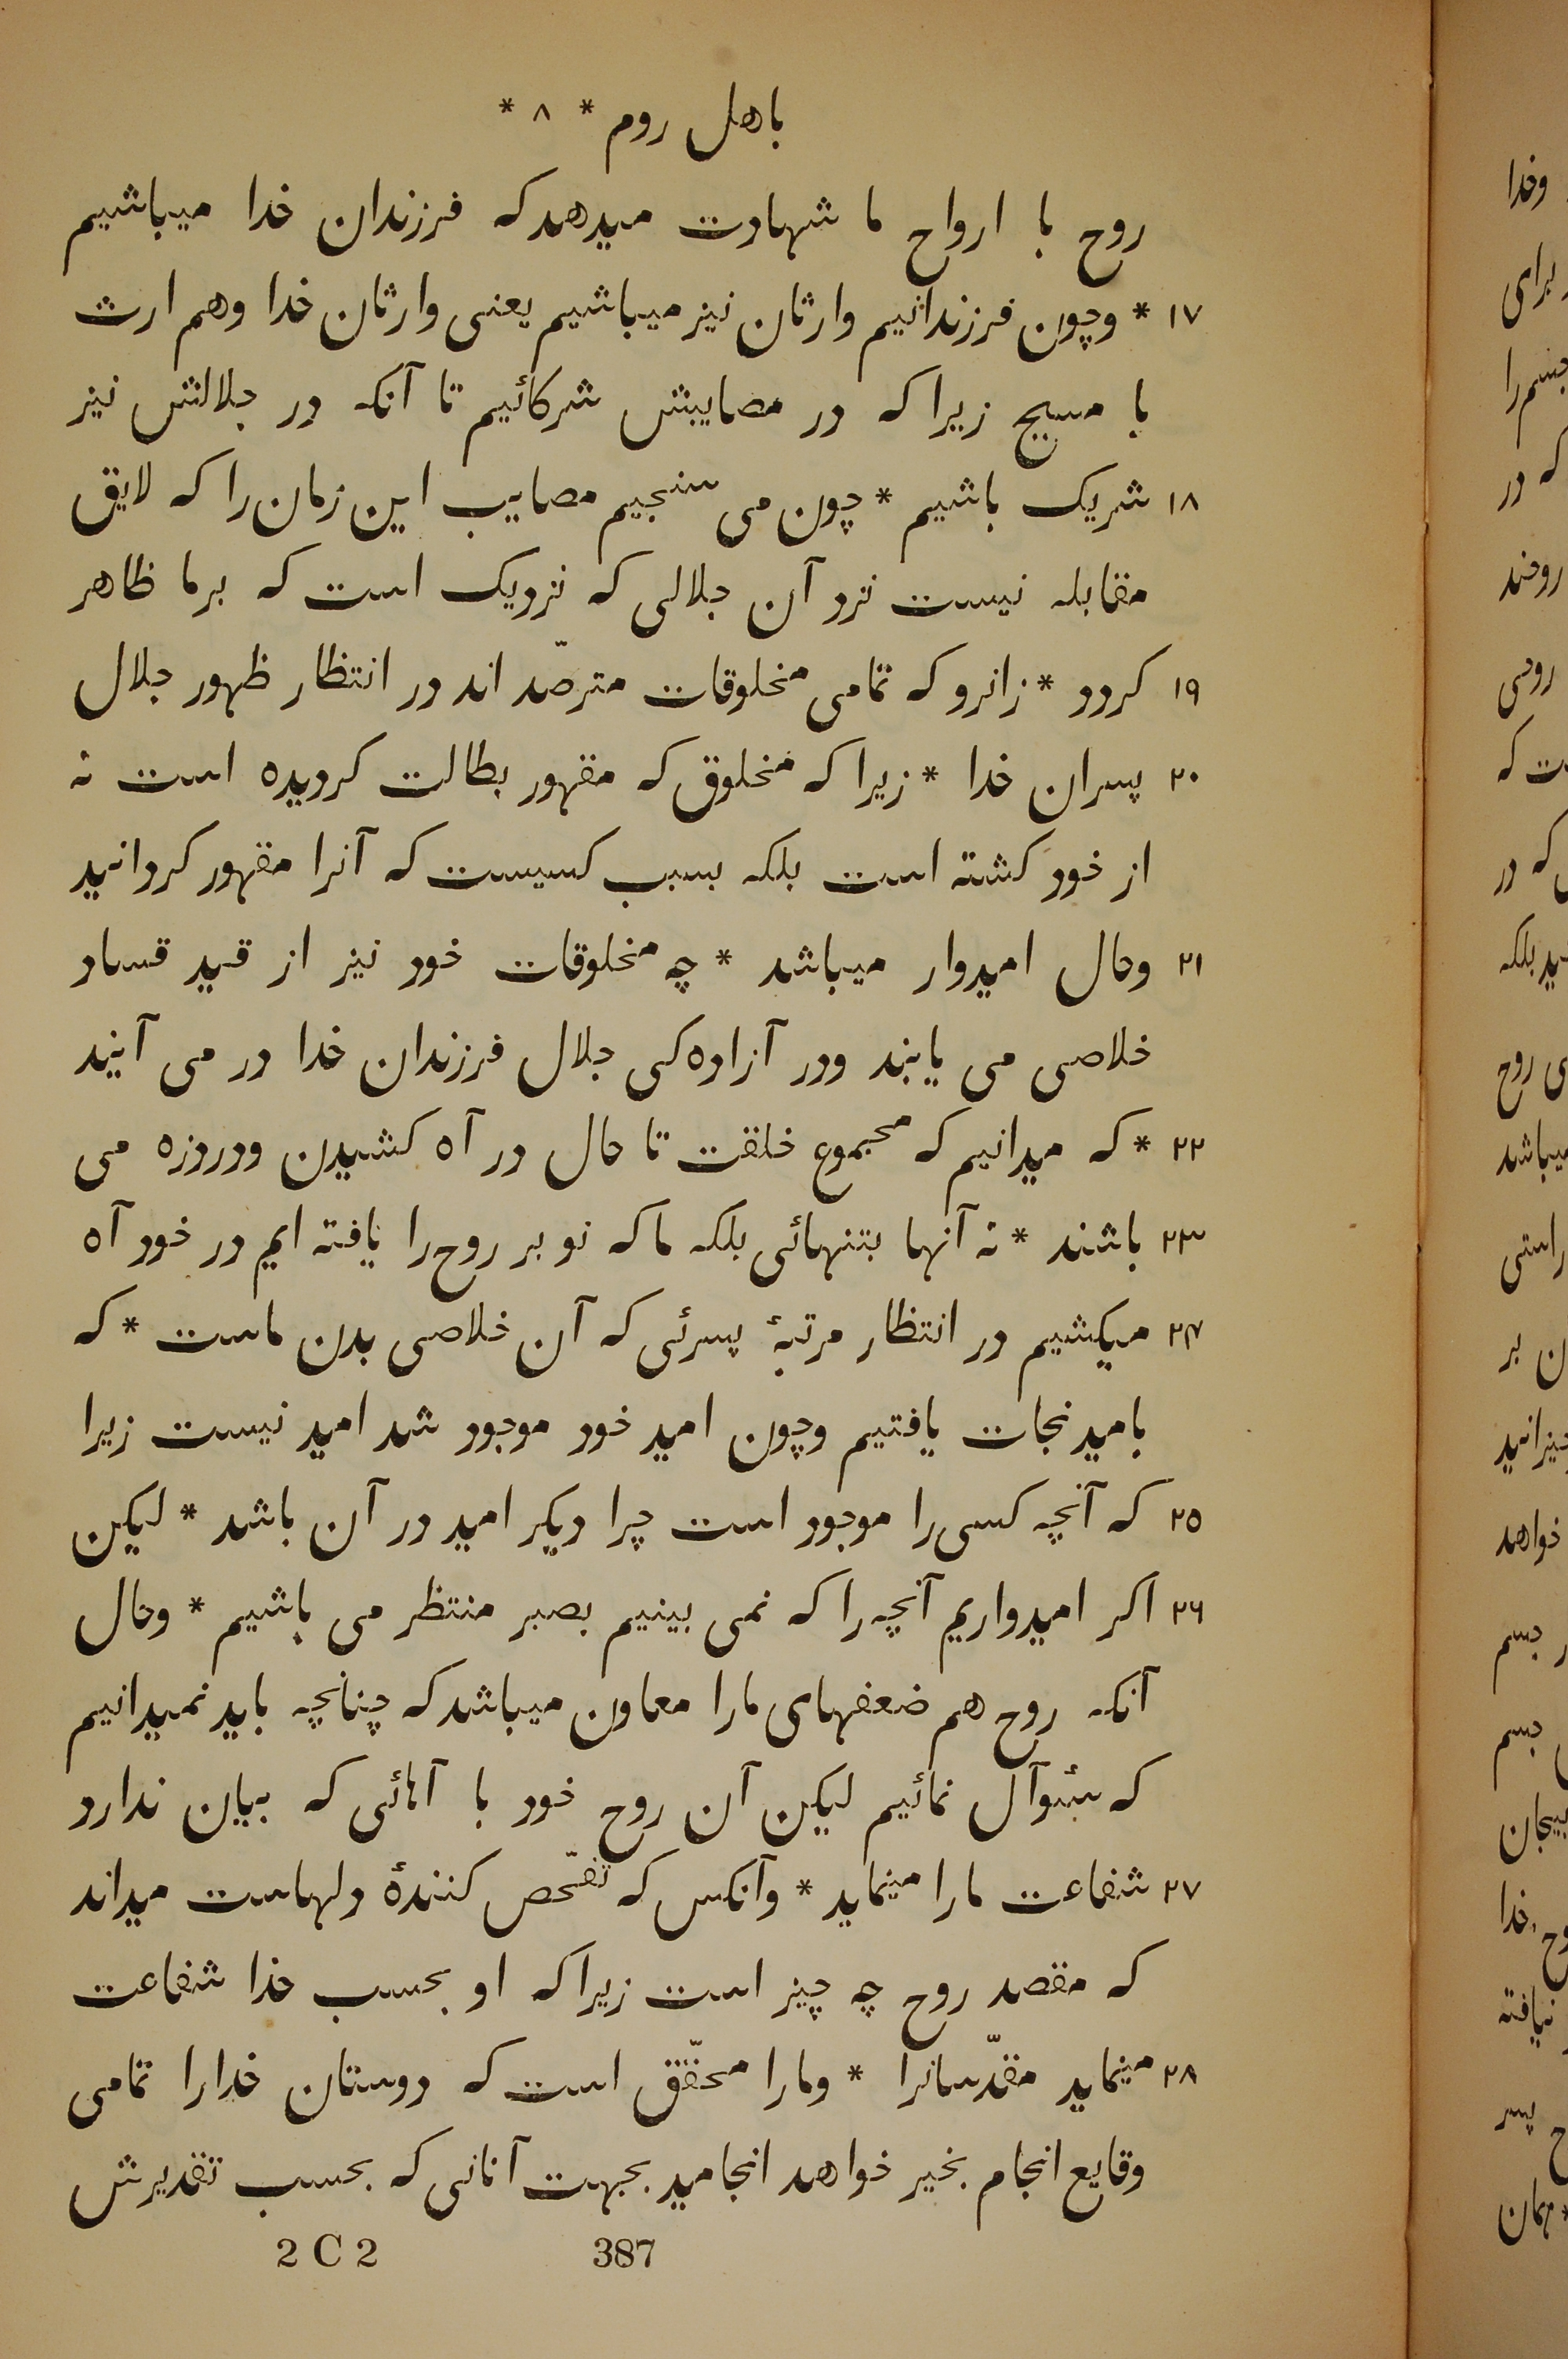 باهل روم * ۸ *
روح با ارواح ما شهادت میدهد که فرزندان خدا میباشیم
۱۷ * وچون فرزندانیم وارثان نیز میباشیم یعنی وارثان خدا وهم ارث
با مسیح زیرا که در مصایبش شرکائیم تا آنکه در جلالش نیز
۱۸ شریک باشیم * چون می سنجیم مصایب این زمان را که لایق
مقابله نیست نزد آن جلالی که نزدیک است که برما ظاهر
۱۹ کردد * زانرو که تمامی مخلوقات مترصّد اند در انتظار ظهور جلال
۲۰ پسران خدا * زیرا که مخلوق که مقهور بطالت کردیده است نه
از خود کشته است بلکه بسبب کسیست که آنرا مقهور کردانید
۲۱ وحال امیدوار میباشد * چه مخلوقات خود نیز از قید فساد
خلاصی می یابند ودر آزاده کی جلال فرزندان خدا در می آیند
۲۲ * که میدانیم که مجموع خلقت تا حال در آه کشیدن ودرد زه می
۲۳ باشند * نه آنها بتنهائی بلکه ما که نو بر روح را یافته ایم در خود آه
۲۴ میکشیم در انتظار مرتبهٔ پسرئی که آن خلاصی بدن ماست * که
بامید نجات یافتیم وچون امید خود موجود شد امید نیست زیرا
۲۵ که آنچه کسی را موجود است چرا دیکر امید در آن باشد * لیکن
۲۶ اکر امیدواریم آنچه را که نمی بینیم بصبر منتظر می باشیم * وحال
آنکه روح هم ضعفهای مارا معاون میباشد که چنانچه باید نمیدانیم
که سئوآل نمائیم لیکن آن روح خود با آهائی که بیان ندارد
۲۷ شفاعت مارا مینماید * وآنکس که تفحّص کنندهٔ دلهاست میداند
که مقصد روح چه چیز است زیرا که او بحسب خدا شفاعت
۲۸ مینماید مقدّسانرا * ومارا محقّق است که دوستان خدارا تمامی
وقایع انجام بخیر خواهد انجامید بجهت آنانی که بحسب تقدیرش
2 C 2 387